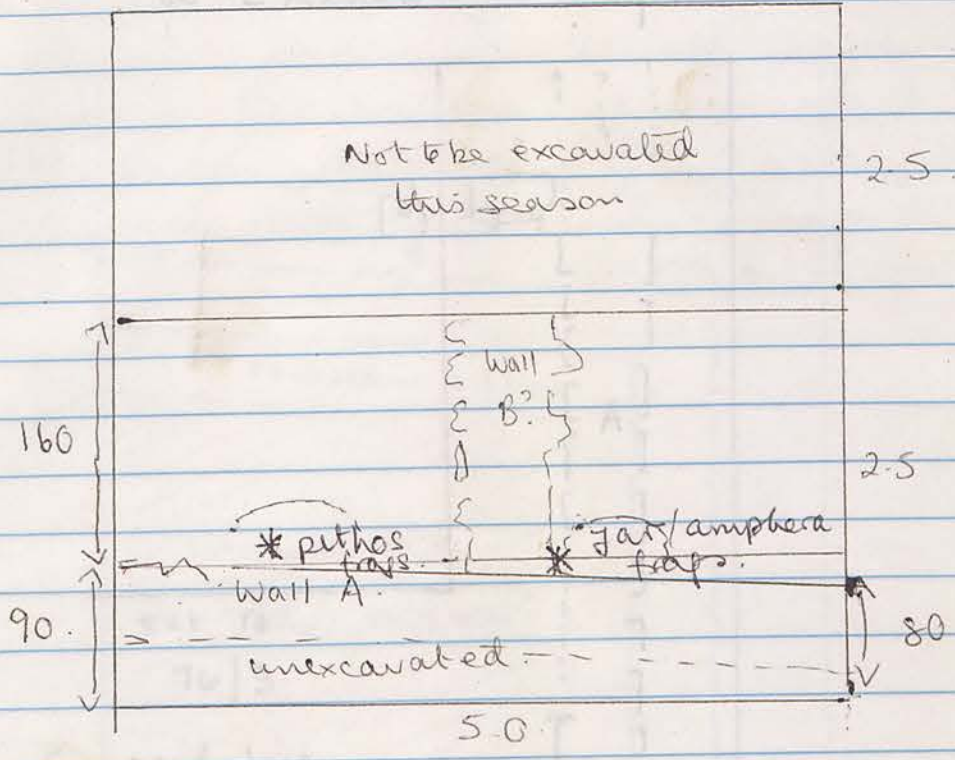 Not to be excavated
this season
2.5
Wall
B?
160
2.5
* pithos
frags.
* jar/amphora
frags.
Wall A.
90.
80
unexcavated
5.0